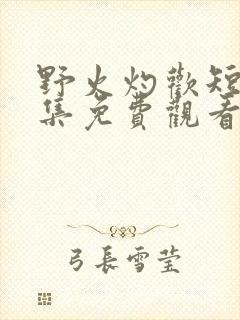 野火灼歡短
集免費觀看
弓長雪莹